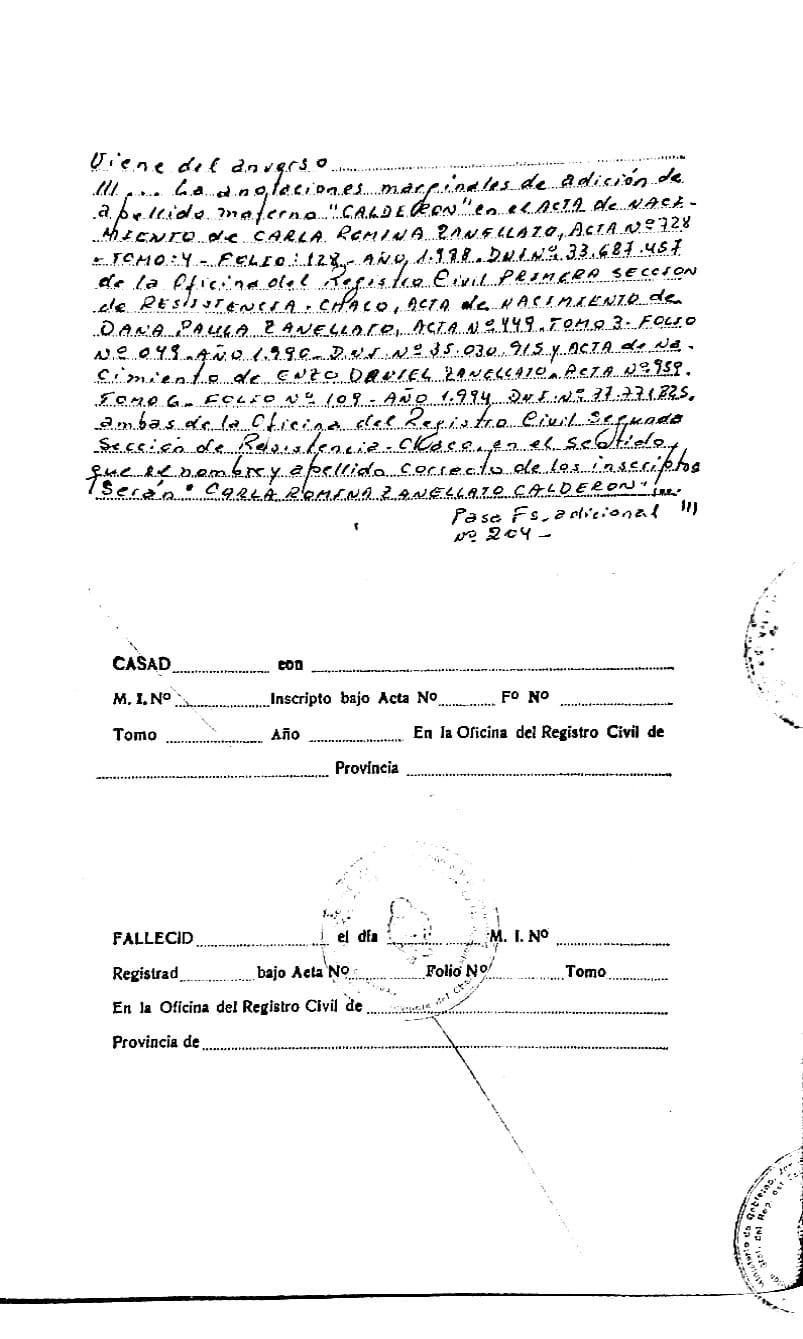 Viene del anverso
/// ... La anotaciones marginales de adición de
apellido materno "CALDERON" en el ACTA de NACI-
MIENTO de CARLA ROMINA ZANELLATO, ACTA Nº 728
- TOMO: 4 - FOLIO: 128 - AÑO, 1.988. DNI Nº. 33.687.457
de la Oficina del Registro Civil PRIMERA SECCION
de RESISTENCIA - CHACO, ACTA de NACIMIENTO de
DANA PAULA ZANELLATO, ACTA Nº 449. TOMO 3. FOLIO
Nº 049. AÑO 1.990. D.N.I. Nº 35.030.915 y ACTA de Na-
cimiento de ENZO DANIEL ZANELLATO. ACTA Nº 959.
TOMO 6 - FOLIO Nº 109 - AÑO 1.994 DNI. Nº. 37.771.825.
ambas de la Oficina del Registro Civil Segunda
Sección de Resistencia - Chaco, en el sentido,
que el nombre y apellido correcto de los inscriptos
Serán "CARLA ROMINA ZANELLATO CALDERON"
Pasa Fs. adicional ///
Nº 204 -
CASAD con
M. I. Nº Inscripto bajo Acta Nº Fº Nº
Tomo Año En la Oficina del Registro Civil de
Provincia
FALLECID el día M. I. Nº
Registrad bajo Acta Nº Folio Nº Tomo
En la Oficina del Registro Civil de
Provincia de